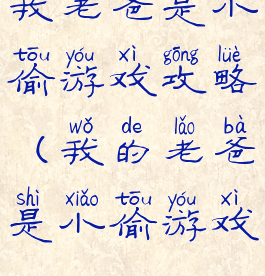 我老爸是小
tōu yóu xì gōng lüè
偷游戏攻略
wǒ de lǎo bà
（我的老爸
shì xiǎo tōu yóu xì
是小偷游戏